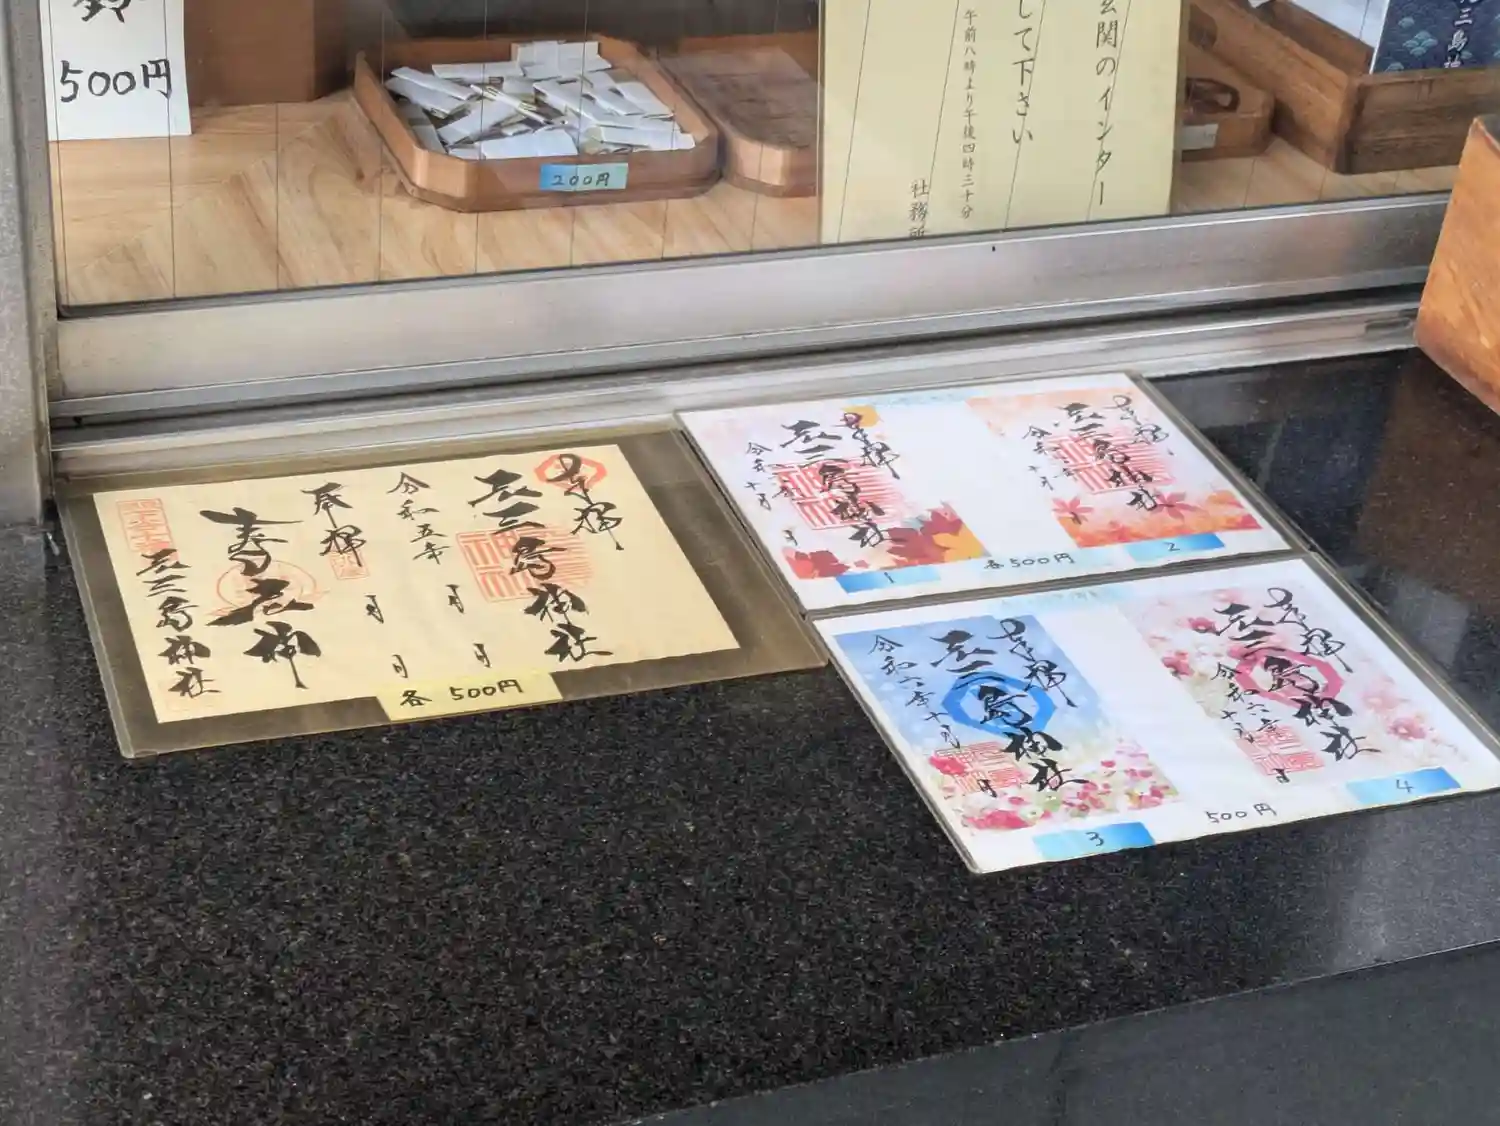 鈴
500円
200円
玄関のインター
して下さい
午前八時より午後四時三十分
社務所
三島神
奉拝
元三島神社
令和五年 月 日
奉拝
月 日
寿老神
元三島神社
各 500円
奉拝
元三島神社
令和六年十月 日
1
奉拝
元三島神社
令和六年十月 日
2
各500円
奉拝
元三島神社
令和六年十月 日
3
奉拝
元三島神社
令和六年十月 日
4
500円